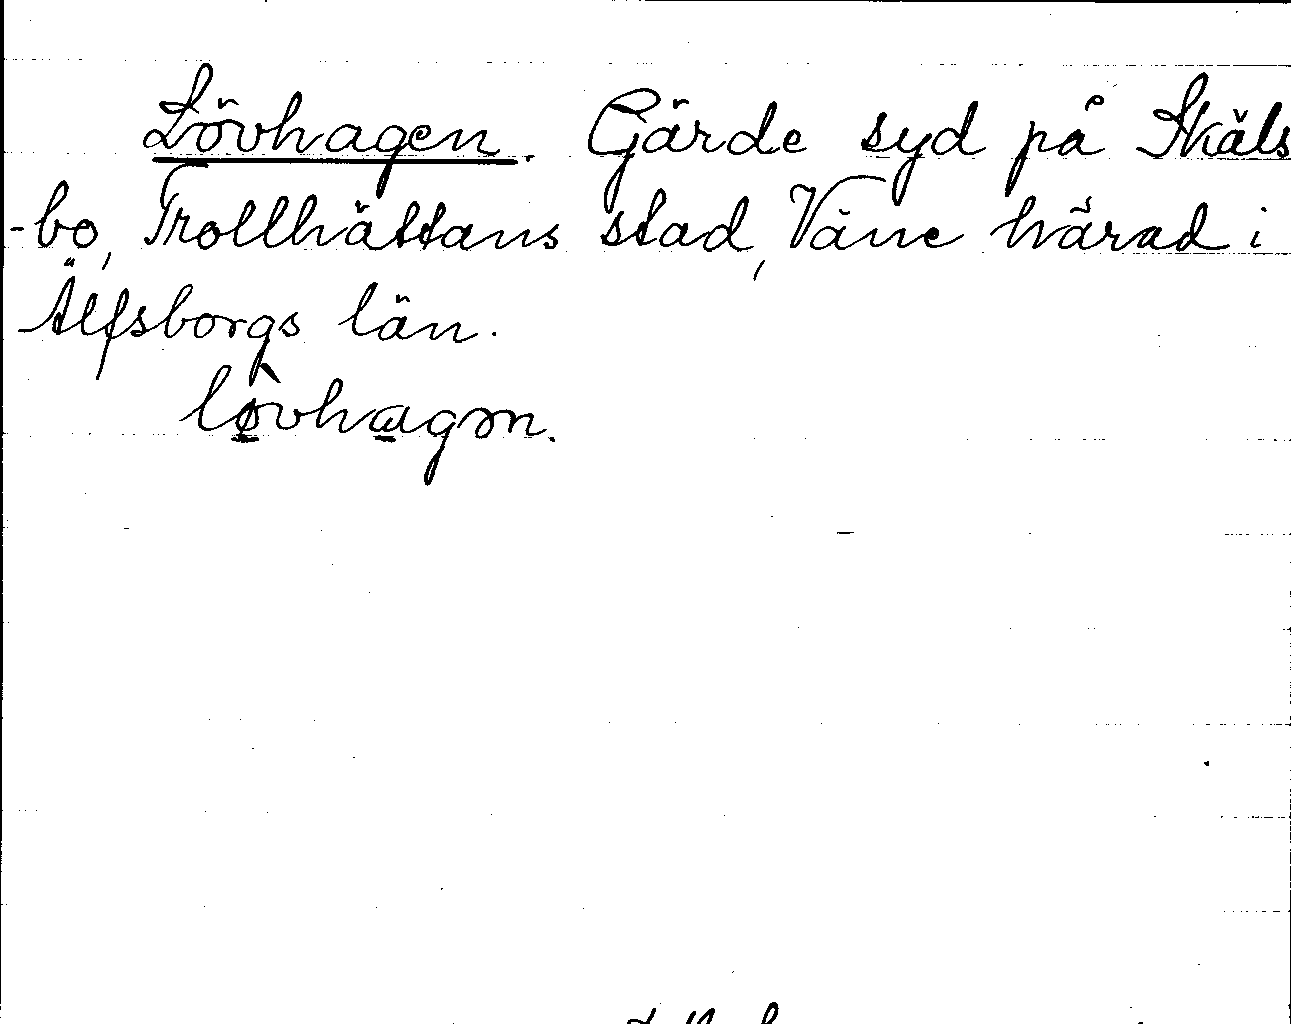 Lövhagen. Gärde syd på Skäls
-bo, Trollhättans stad, Väne härad i
Älfsborgs län.
lø̀vhagən.